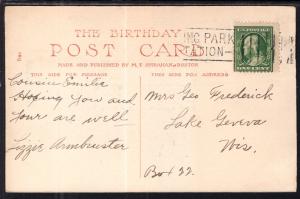 THE BIRTHDAY
POST CARD
MADE AND PUBLISHED BY M.T. SHEAHAN, BOSTON
THIS SIDE FOR MESSAGE
THIS SIDE FOR ADDRESS
ING PARK
STATION
Cousin Emilie
Hoping you and
your are well
Lizzie Armbruster
Mrs Geo Frederick
Lake Geneva
Wis.
Box 22.
ONE CENT